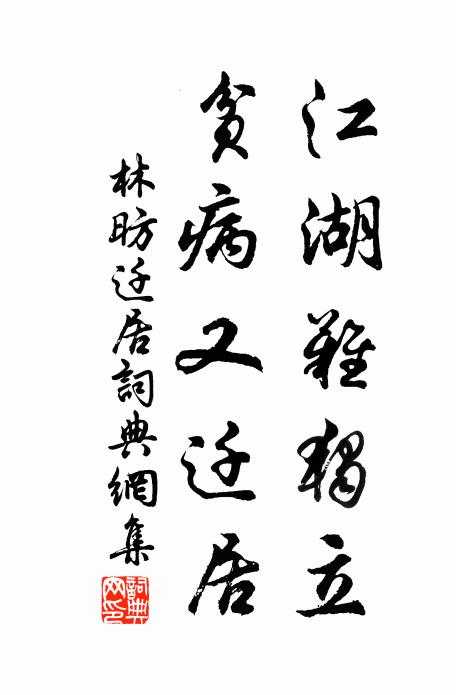 江湖難獨立
貧病又迁居
林昉迁居詞典網集
詞典网印